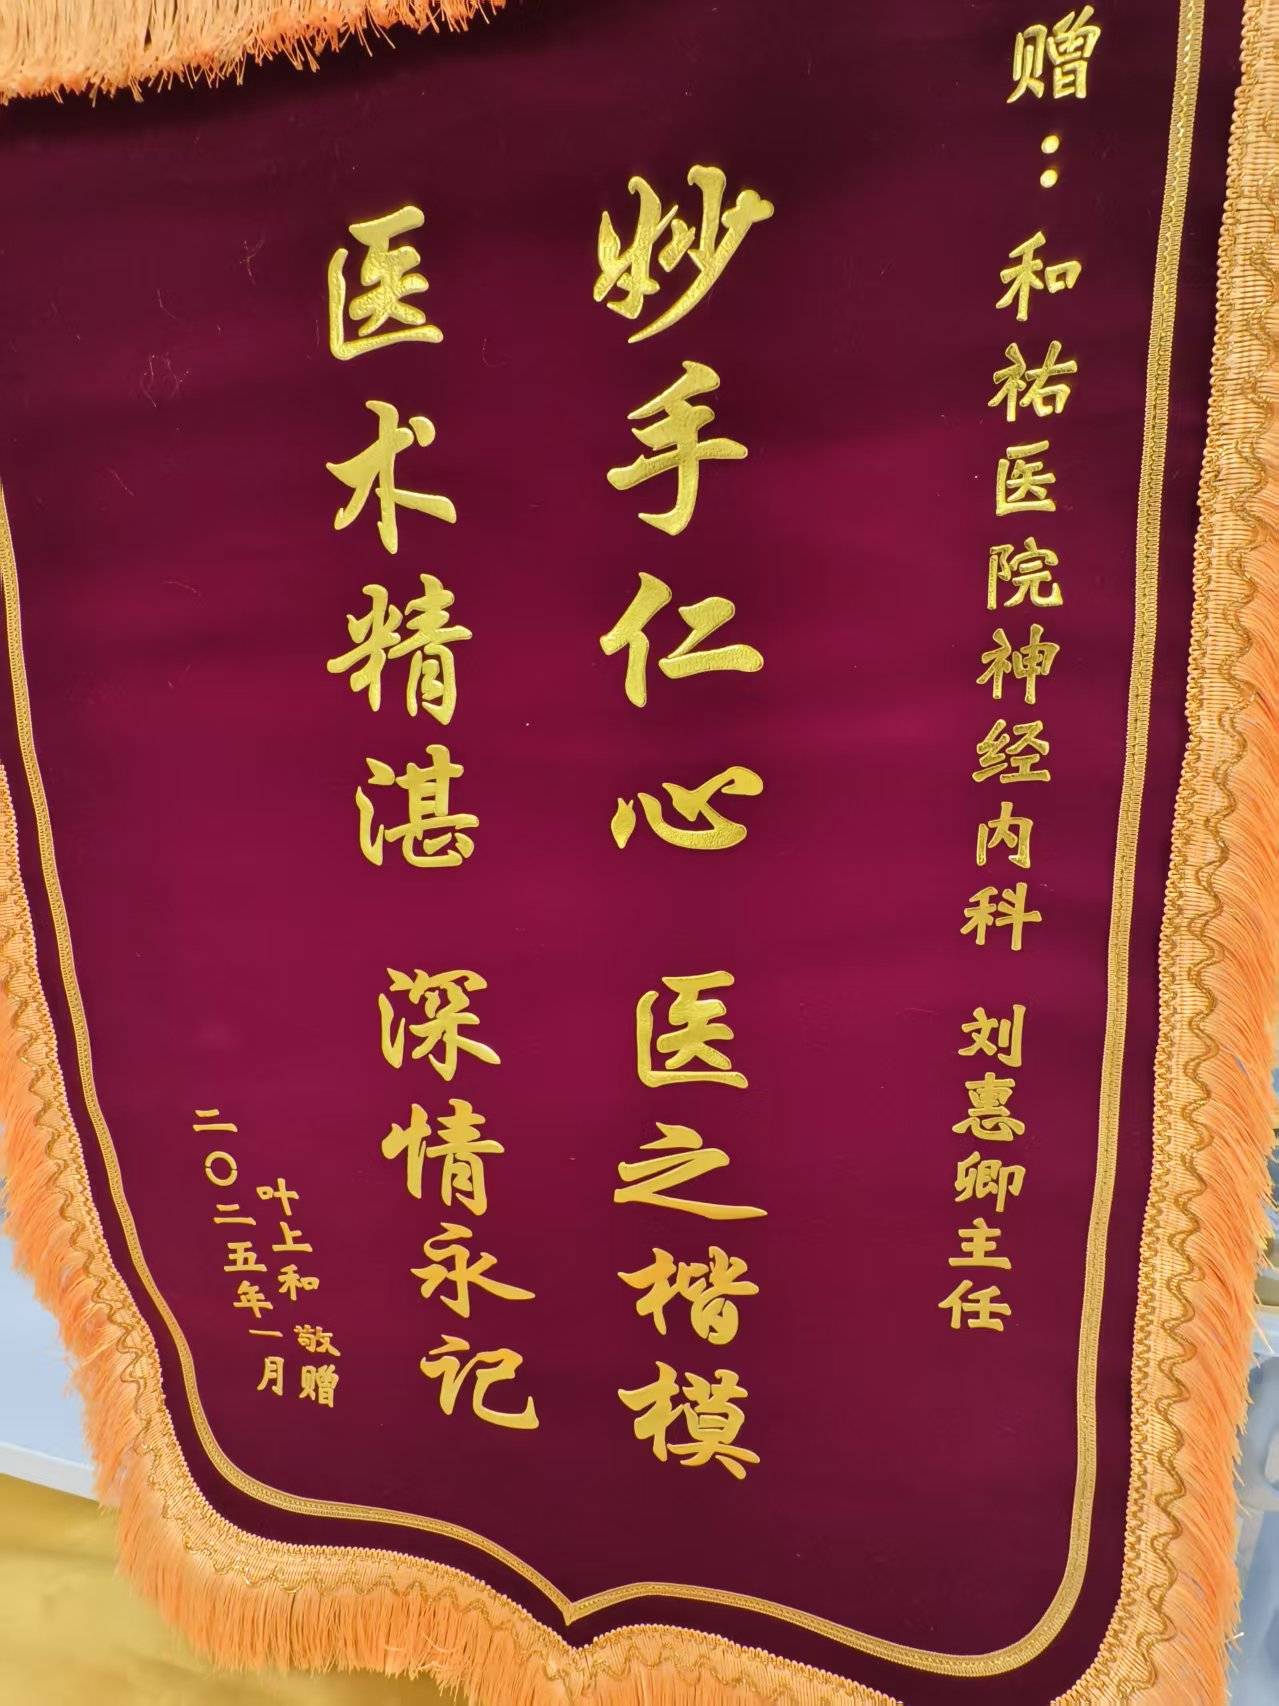 赠：和祐医院神经内科 刘惠卿主任
妙手仁心 医之楷模
医术精湛 深情永记
叶上和 敬赠
二〇二五年一月